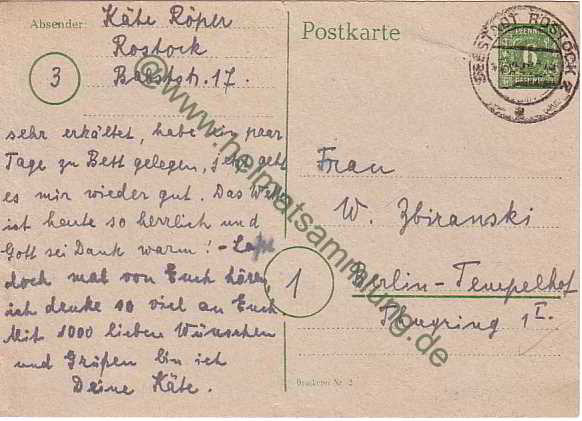 Absender
Käte Röper
Rostock
3
17.
sehr erkältet, habe ein paar
Tage zu Bett gelegen, jetzt geht
es mir wieder gut. Das
ist heute so herrlich und
Gott sei Dank warm! -
doch mal von Euch hören,
ich denke so viel an Euch.
Mit 1000 lieben Wünschen
und Grüßen bin ich
Deine Käte.
Postkarte
SEESTADT ROSTOCK 2
Frau
W. Zbiranski
1
Berlin-Tempelhof
1 I.
Druckerei Nr. 2
@www.heimatsammlung.de